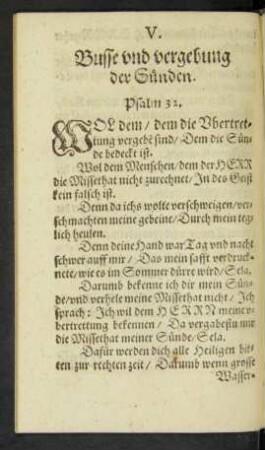 V.
Busse vnd vergebung
der Sünden.
Psalm 32.
WOL dem / dem die Vbertret-
tung vergebē sind / Dem die Sün-
de bedeckt ist.
Wol dem Menschen / dem der HERR
die Missethat nicht zurechnet / In des Geist
kein falsch ist.
Denn da ichs wolte verschweigen / ver-
schmachten meine gebeine / Durch mein teg-
lich heulen.
Denn deine Hand war Tag vnd nacht
schwer auff mir / Das mein safft verdruck-
nete / wie es im Sommer dürre wird / Sela.
Darumb bekenne ich dir mein Sün-
de / vnd verhele meine Missethat nicht / Ich
sprach: Ich wil dem HERRN meine v-
bertrettung bekennen / Da vergabestu mir
die Missethat meiner Sünde / Sela.
Dafür werden dich alle Heiligen bit-
ten zur rechten zeit / Darumb wenn grosse
Wasser-